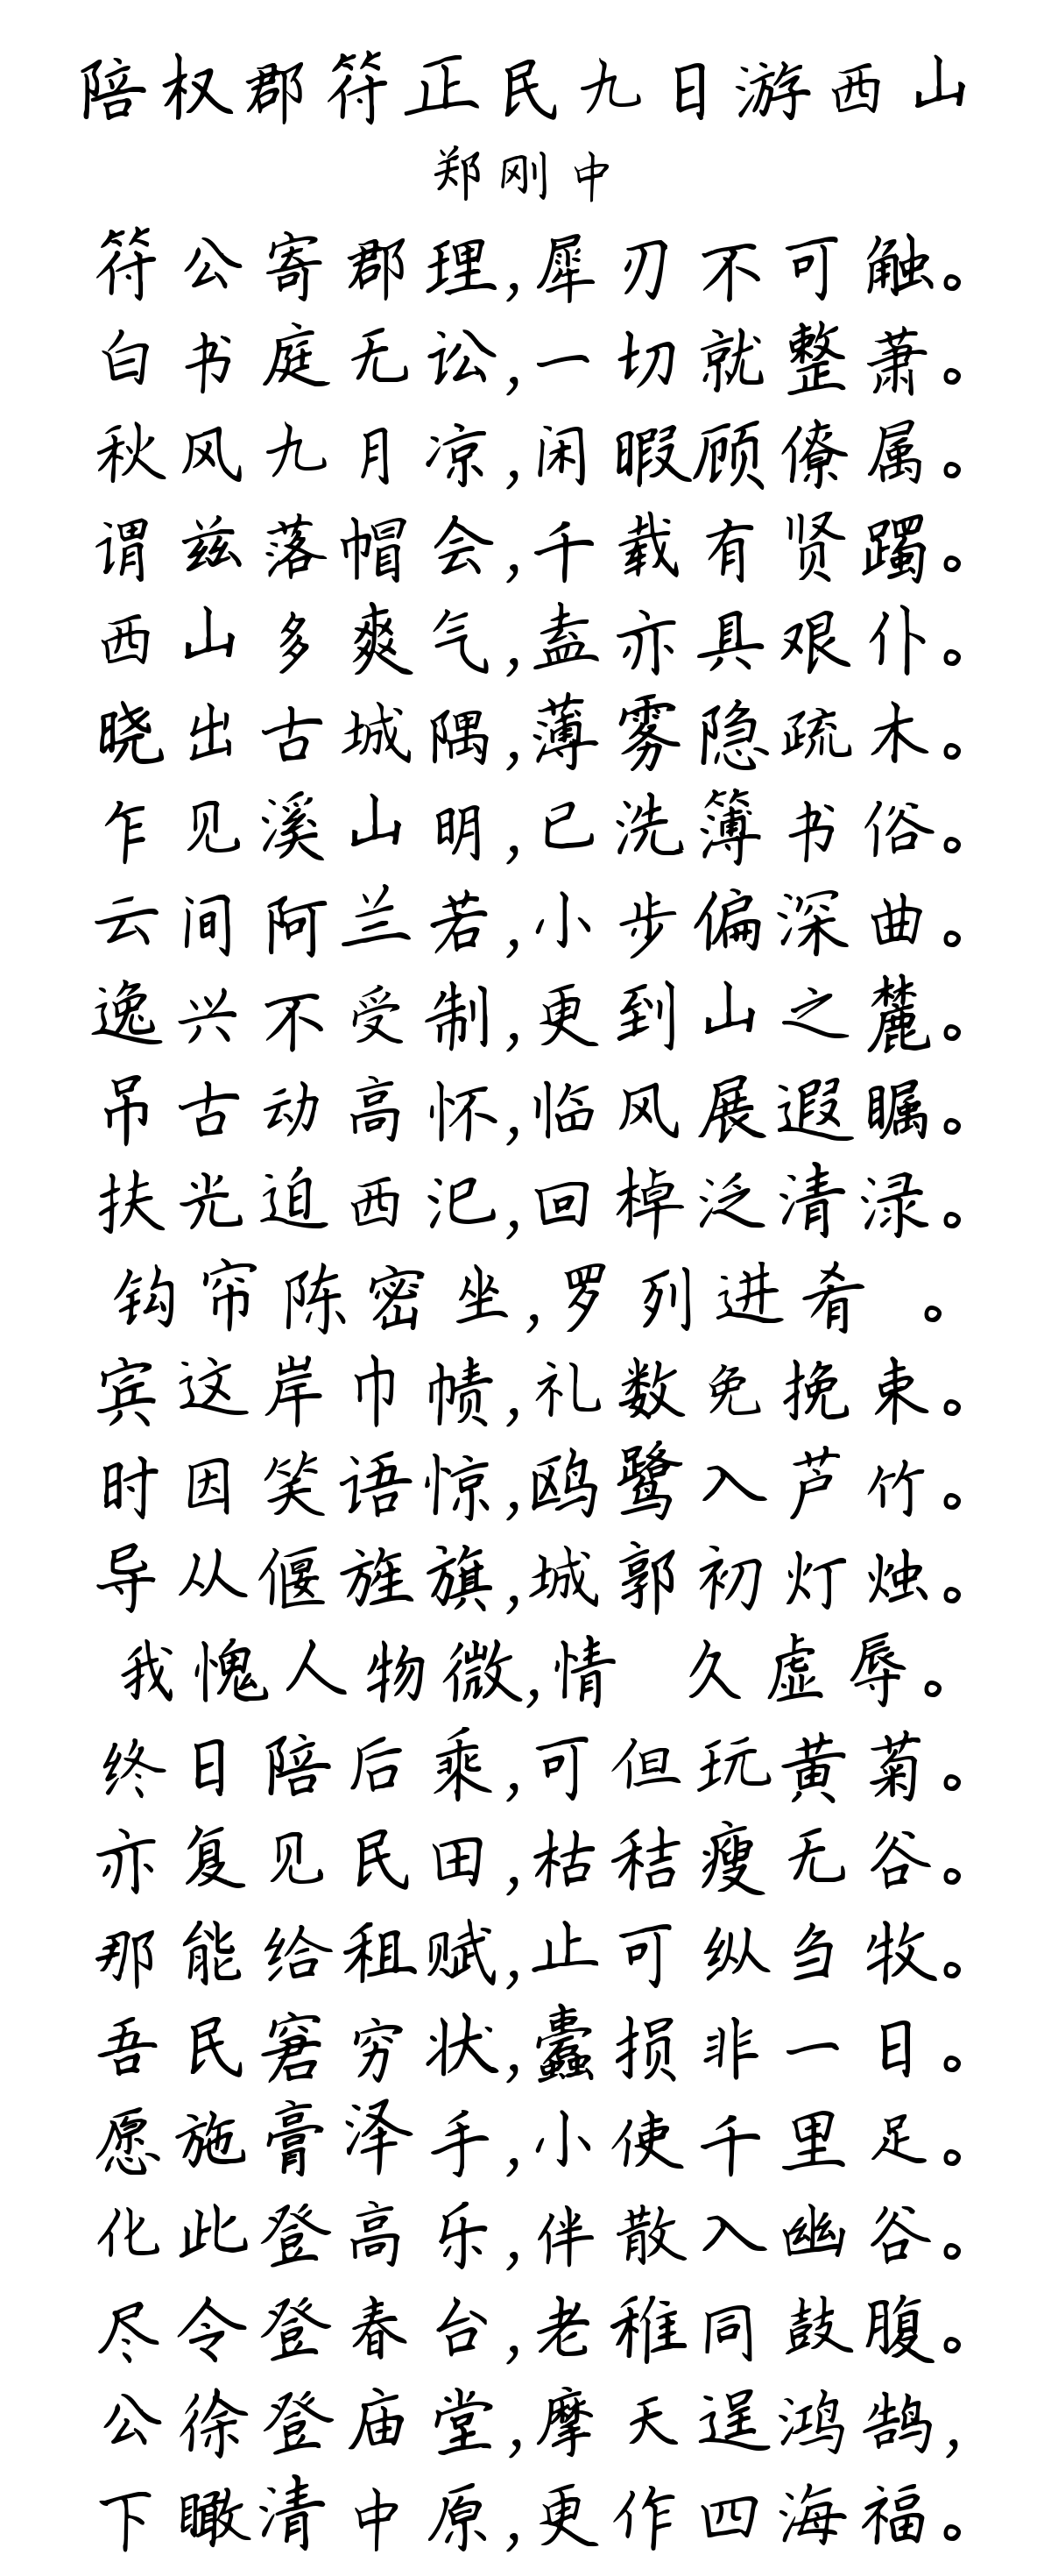 陪权郡符正民九日游西山
郑刚中
符公寄郡理,犀刃不可触。
白书庭无讼,一切就整萧。
秋风九月凉,闲暇顾僚属。
谓兹落帽会,千载有贤躅。
西山多爽气,盍亦具艰仆。
晓出古城隅,薄雾隐疏木。
乍见溪山明,已洗簿书俗。
云间阿兰若,小步偏深曲。
逸兴不受制,更到山之麓。
吊古动高怀,临风展遐瞩。
扶光迫西汜,回棹泛清渌。
钩帘陈密坐,罗列进肴 。
宾这岸巾帻,礼数免挽束。
时因笑语惊,鸥鹭入芦竹。
导从偃旌旗,城郭初灯烛。
我愧人物微,情 久虚辱。
终日陪后乘,可但玩黄菊。
亦复见民田,枯秸瘦无谷。
那能给租赋,止可纵刍牧。
吾民窘穷状,蠹损非一日。
愿施膏泽手,小使千里足。
化此登高乐,伴散入幽谷。
尽令登春台,老稚同鼓腹。
公徐登庙堂,摩天逞鸿鹄,
下瞰清中原,更作四海福。